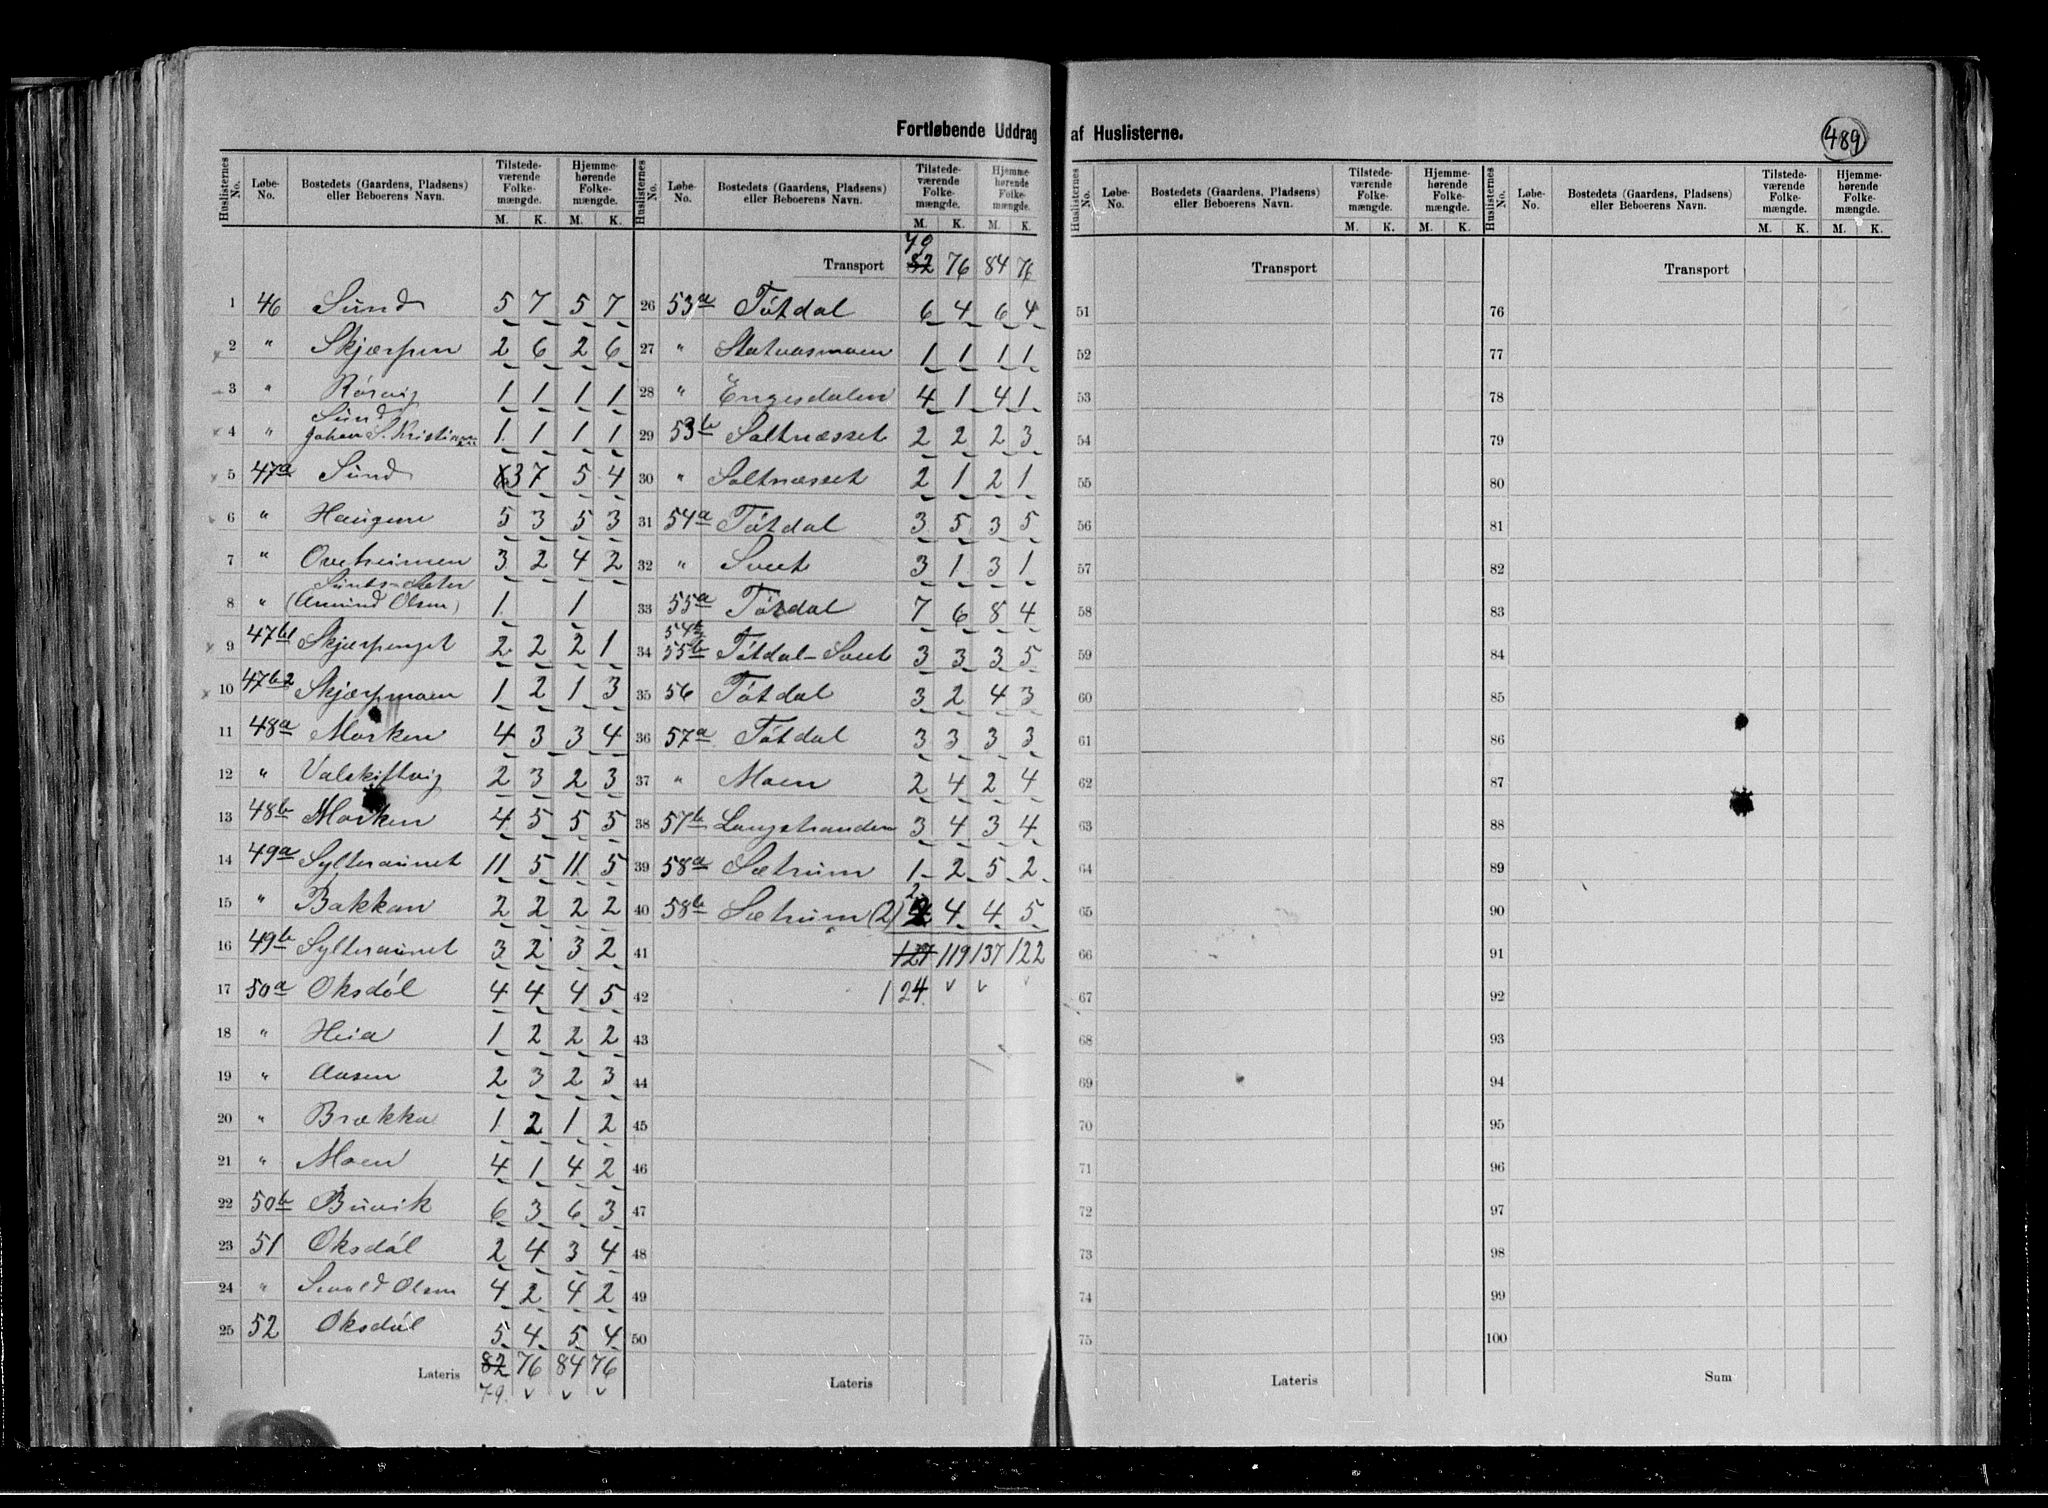 489
Fortløbende Uddrag af Huslisterne.
Huslisternes No. Løbe-No. Bostedets (Gaardens, Pladsens) eller Beboerens Navn. Tilstedeværende Folkemængde. Hjemmehørende Folkemængde.
M. K. M. K.
1 46 Sund 5 7 5 7
2 " Skjærpen 2 6 2 6
3 " Rørvig 1 1 1 1
Sund
4 " Johan S. Kristiansen 1 1 1 1
5 47a Sund 3 7 5 4
6 " Haugen 5 3 5 3
7 " Overheimen 3 2 4 2
8 " (Amund Olsen) 1 1
9 47b1 Skjærpenget 2 2 2 1
10 47b2 Skjærpmoen 1 2 1 3
11 48a Morken 4 3 3 4
12 " Valskiftvig 2 3 2 3
13 48b Morken 4 5 5 5
14 49a Sylteraunet 11 5 11 5
15 " Bakkan 2 2 2 2
16 49b Sylteraunet 3 2 3 2
17 50a Oksdøl 4 4 4 5
18 " Heia 1 2 2 2
19 " Aasen 2 3 2 3
20 " Brækka 1 2 1 2
21 " Moen 4 1 4 2
22 50b Buvik 6 3 6 3
23 51 Oksdøl 2 4 3 4
24 " Sivald Olsen 4 2 4 2
25 52 Oksdøl 5 4 5 4
Lateris 82 76 84 76
79
Huslisternes No. Løbe-No. Bostedets (Gaardens, Pladsens) eller Beboerens Navn. Tilstedeværende Folkemængde. Hjemmehørende Folkemængde.
M. K. M. K.
79
Transport 82 76 84 76
26 53a Tøtdal 6 4 6 4
27 " Statvasmoen 1 1 1 1
28 " Engesdalen 4 1 4 1
29 53b Saltnæsset 2 2 2 3
30 " Saltnæsset 2 1 2 1
31 54a Tøtdal 3 5 3 5
32 " Svet 3 1 3 1
33 55a Tøtdal 7 6 8 4
54b
34 55b Tøtdal-Svet 3 3 3 5
35 56 Tøtdal 3 2 4 3
36 57a Tøtdal 3 3 3 3
37 " Moen 2 4 2 4
38 57b Langstranden 3 4 3 4
39 58a Sætrum 1 2 5 2
40 58b Sætrum (2) 2 4 4 5
41 127 119 137 122
42 124
43
44
45
46
47
48
49
50
Lateris
Huslisternes No. Løbe-No. Bostedets (Gaardens, Pladsens) eller Beboerens Navn. Tilstedeværende Folkemængde. Hjemmehørende Folkemængde.
M. K. M. K.
Transport
51
52
53
54
55
56
57
58
59
60
61
62
63
64
65
66
67
68
69
70
71
72
73
74
75
Lateris
Huslisternes No. Løbe-No. Bostedets (Gaardens, Pladsens) eller Beboerens Navn. Tilstedeværende Folkemængde. Hjemmehørende Folkemængde.
M. K. M. K.
Transport
76
77
78
79
80
81
82
83
84
85
86
87
88
89
90
91
92
93
94
95
96
97
98
99
100
Sum